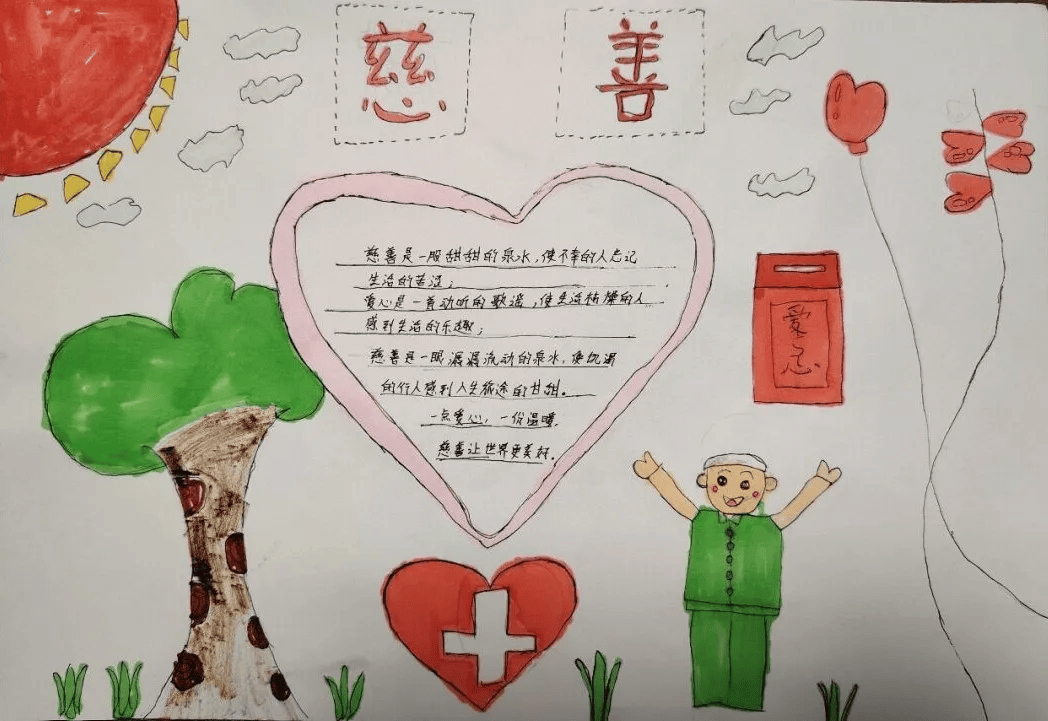 慈善
慈善是一股甜甜的泉水,使不幸的人忘记
生活的苦涩;
爱心是一首动听的歌谣,使生活枯燥的人
感到生活的乐趣;
慈善是一眼潺潺流动的泉水,使饥渴
的行人感到人生旅途的甘甜。
一点爱心,一份温暖,
慈善让世界更美好。
爱心